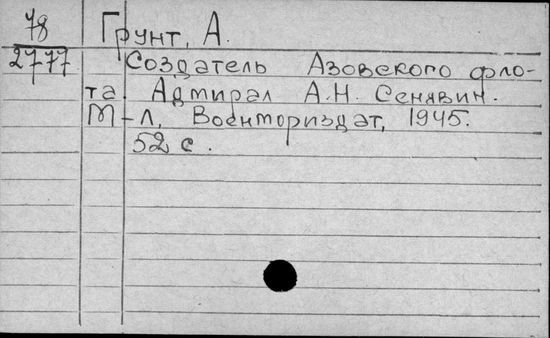 78
2777
Грунт, А.
Создатель Азовского фло-
та. Адмирал А.Н. Сенявин.
М-Л, Военмориздат, 1945.
52 с.